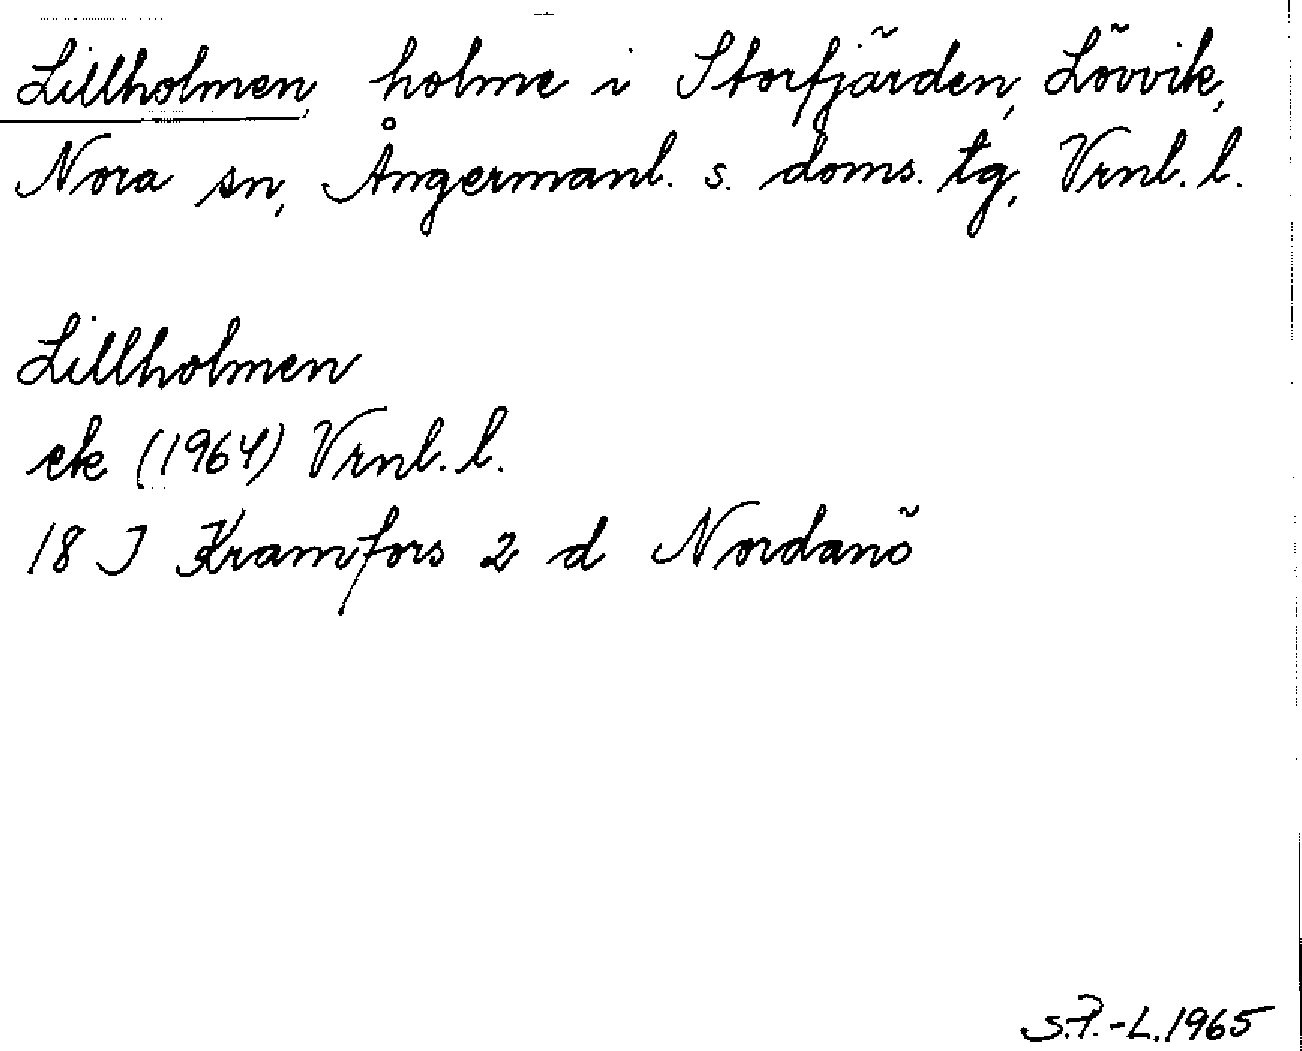 Lillholmen, holme i Storfjärden, Lövvik,
Nora sn, Ångermanl. s. doms. tg, Vrnl. l.
Lillholmen
ek (1964) Vrnl. l.
18 J Kramfors 2 d Nordanö
S.P.-L. 1965